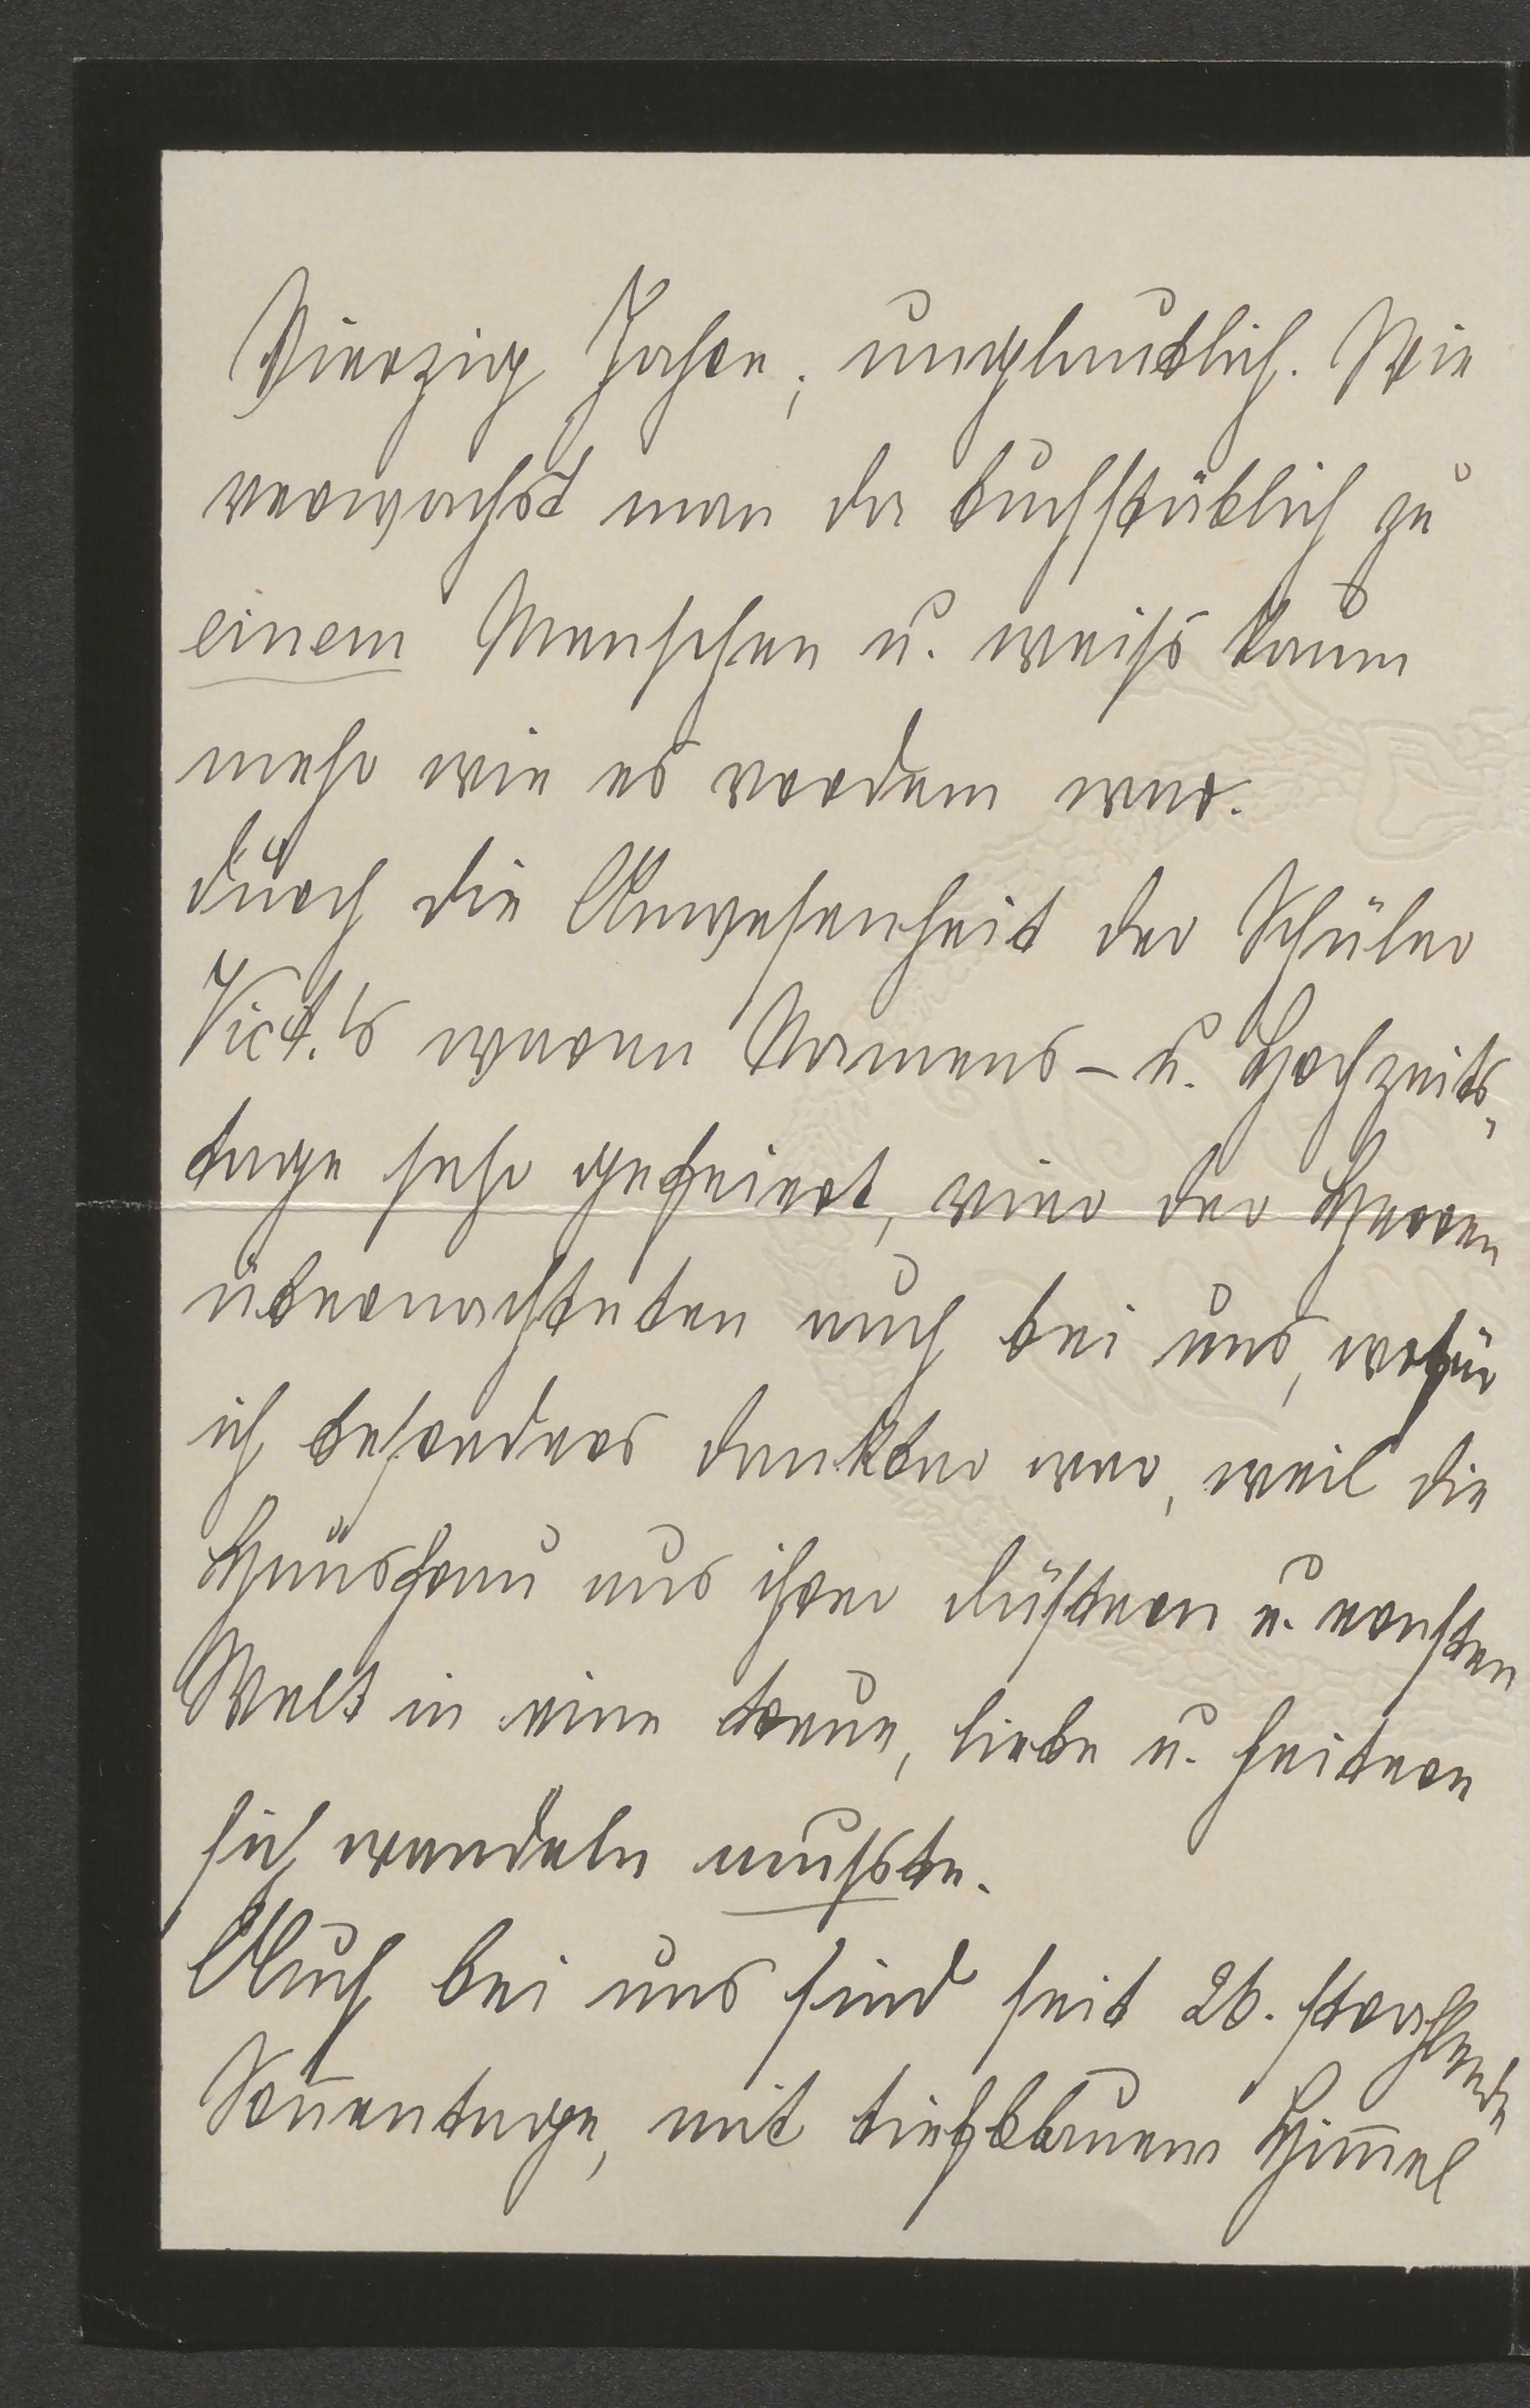 Vierzig Jahre, unglaublich. Wie
verwachst man da buchstäblich zu
einem Menschen u. weiss kaum
mehr wie es vordem war.
Durch die Anwesenheit der Schüler
Vict.'s waren Namens- u. Hochzeits-
tage sehr gefeiert, vier der Herren
übernachteten auch bei uns, wofür
ich besonders dankbar war, weil die
Hausfrau aus ihrer düstern u. ernsten
Welt in eine treue, liebe u. heitere
sich wandeln musste.
Auch bei uns sind seit 26. strahlende
Son̄entage, mit tiefblauem Him̄el